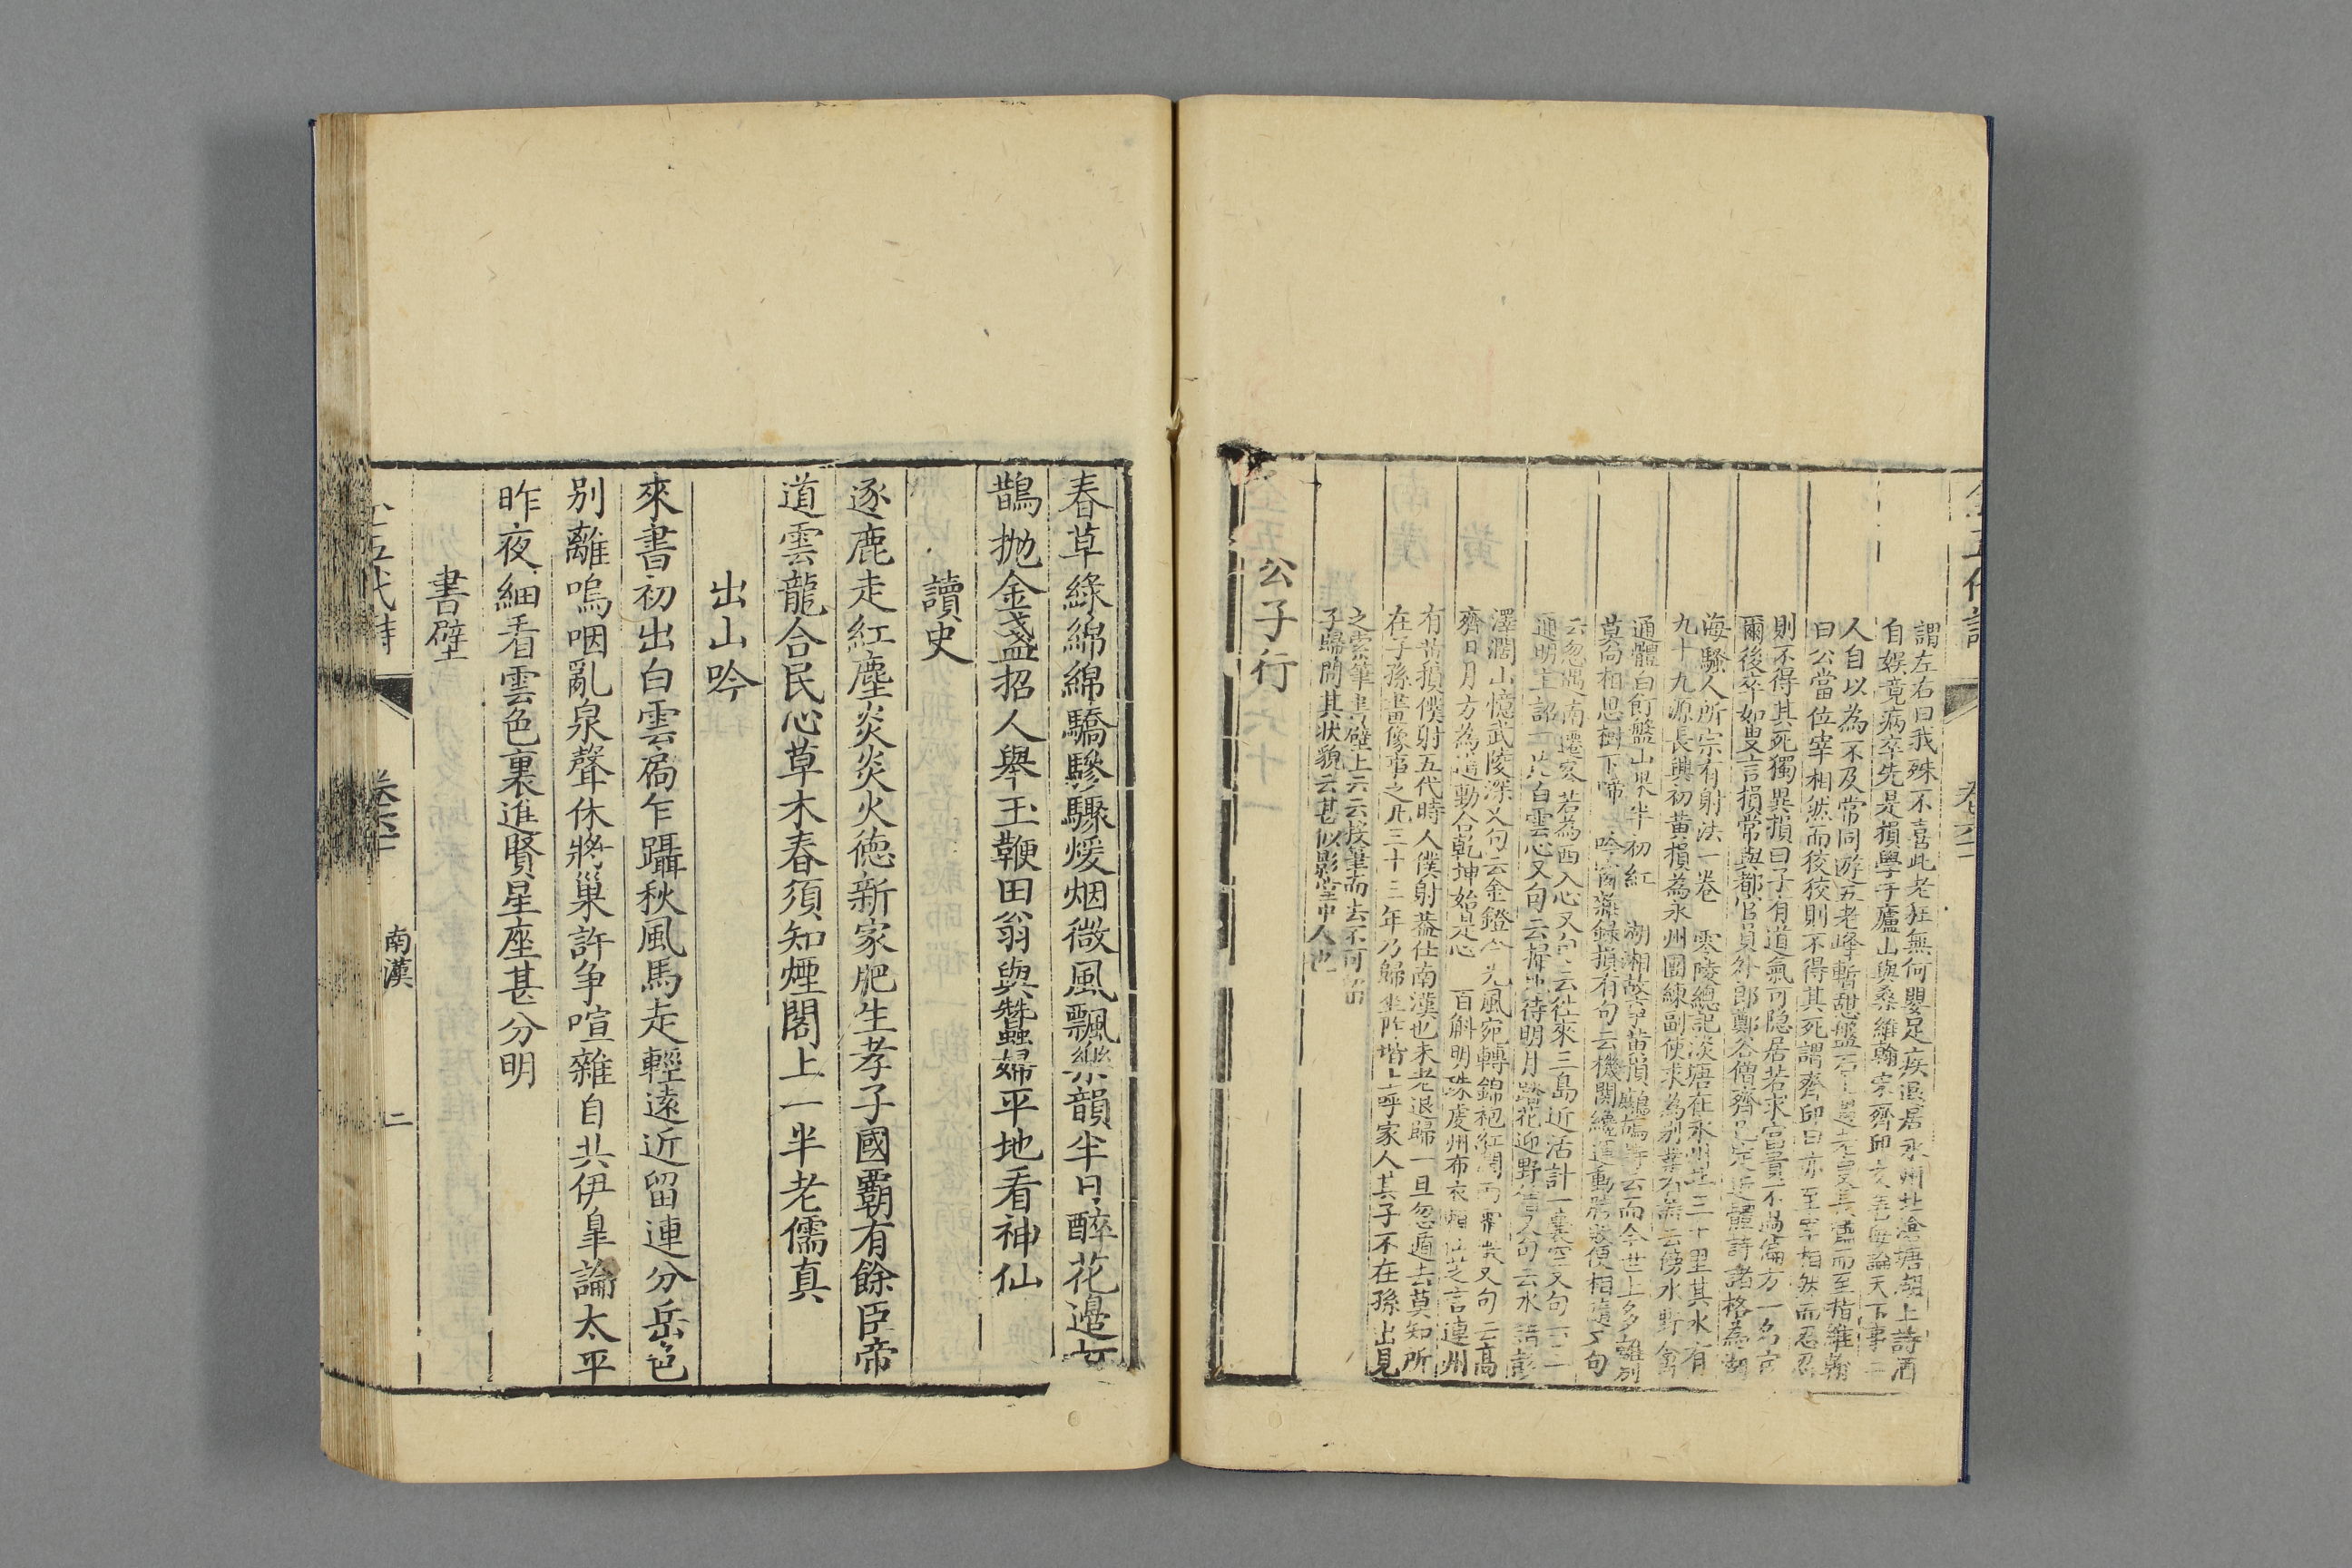 謂左右曰我殊不喜此老狂無何嬰足疾退居永州北滄塘湖上詩酒
自娛竟病卒先是損學于廬山與桑維翰宋齊邱交善每論天下事二
人自以為不及常同遊五老峰暫憩盤石
曰公當位宰相然而狡狡則不得其死謂齊邱曰亦至宰相然而忍忍
則不得其死獨異損曰子有道氣可隐居若求官貴不為
爾後卒如叟言損常與都官員外郎鄭谷僧齊己定近體詩諸格為湖
海騷人所宗有射法一卷 零陵總記淡塘在永州北三十里其水有
九十九源長興初黃損為永州團練副使求為别業
通體白飣盤山果半初紅 湖湘故事黄損鷓鴣
莫向相思樹下啼 吟窗雜録損有句云機關
云忽遇南遷客若為西入心又句云往來三島近活計一囊空又句云
逥明主詔 白雲心又句云掃地待明月踏花迎野僧又句云水
澤濶山憶武陵深又句云金鐙 風宛轉錦袍紅 又句云高
齊日月方為道動合乾坤始是心 百斛明珠虔州布衣 之言連州
有黃損僕射五代時人僕射葢仕南漢也未老退歸一旦忽遁去莫知所
在子孫畫像事之凡三十三年乃歸坐阼堦上呼家人其子不在孫出見
之索筆書壁上云云投筆而去不可留
子歸問其状貌云甚似影堂中人也
公子行
春草綠綿綿驕驂驟煖烟微風飄樂韻半日醉花邊
鵲抛金盞招人舉玉鞭田翁與蠶婦平地看神仙
讀史
逐鹿走紅塵炎炎火徳新家肥生孝子國覇有餘臣帝
道雲龍合民心草木春須知煙閣上一半老儒真
出山吟
來書初出白雲扃乍躡秋風馬走輕遠近留連分岳色
別離嗚咽亂泉聲休將巢許争喧雜自共伊皐論太平
昨夜細看雲色裏進賢星座甚分明
書壁
南漢
二